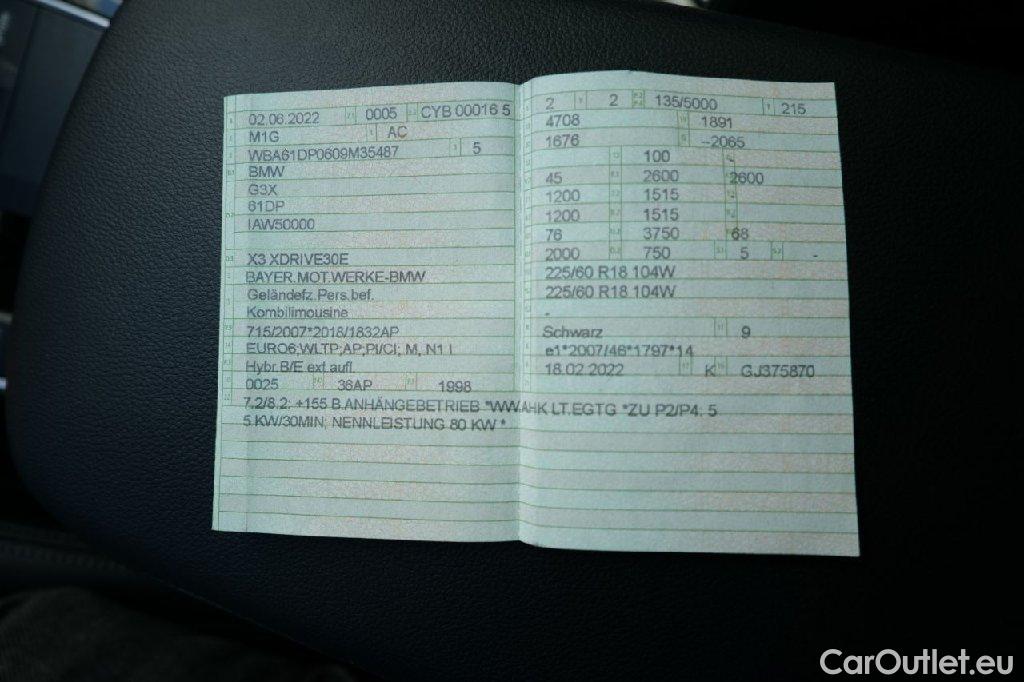 02.06.2022 0005 CYB 00016 5
M1G AC
WBA61DP0609M35487 5
BMW
G3X
61DP
IAW50000
X3 XDRIVE30E
BAYER.MOT.WERKE-BMW
Geländefz.Pers.bef.
Kombilimousine
715/2007*2018/1832AP
EURO6;WLTP;AP;PI/CI; M, N1 I
Hybr.B/E ext.aufl.
0025 36AP 1998
2 2 135/5000 215
4708 1891
1676 –2065
100 -
45 2600 2600
1200 1515 -
1200 1515 -
76 3750 68
2000 750 5 -
225/60 R18 104W
225/60 R18 104W
-
Schwarz 9
e1*2007/46*1797*14
18.02.2022 K GJ375870
7.2/8.2: +155 B.ANHÄNGEBETRIEB *WW.AHK LT.EGTG *ZU P2/P4; 5
5 KW/30MIN; NENNLEISTUNG 80 KW *
CarOutlet.eu